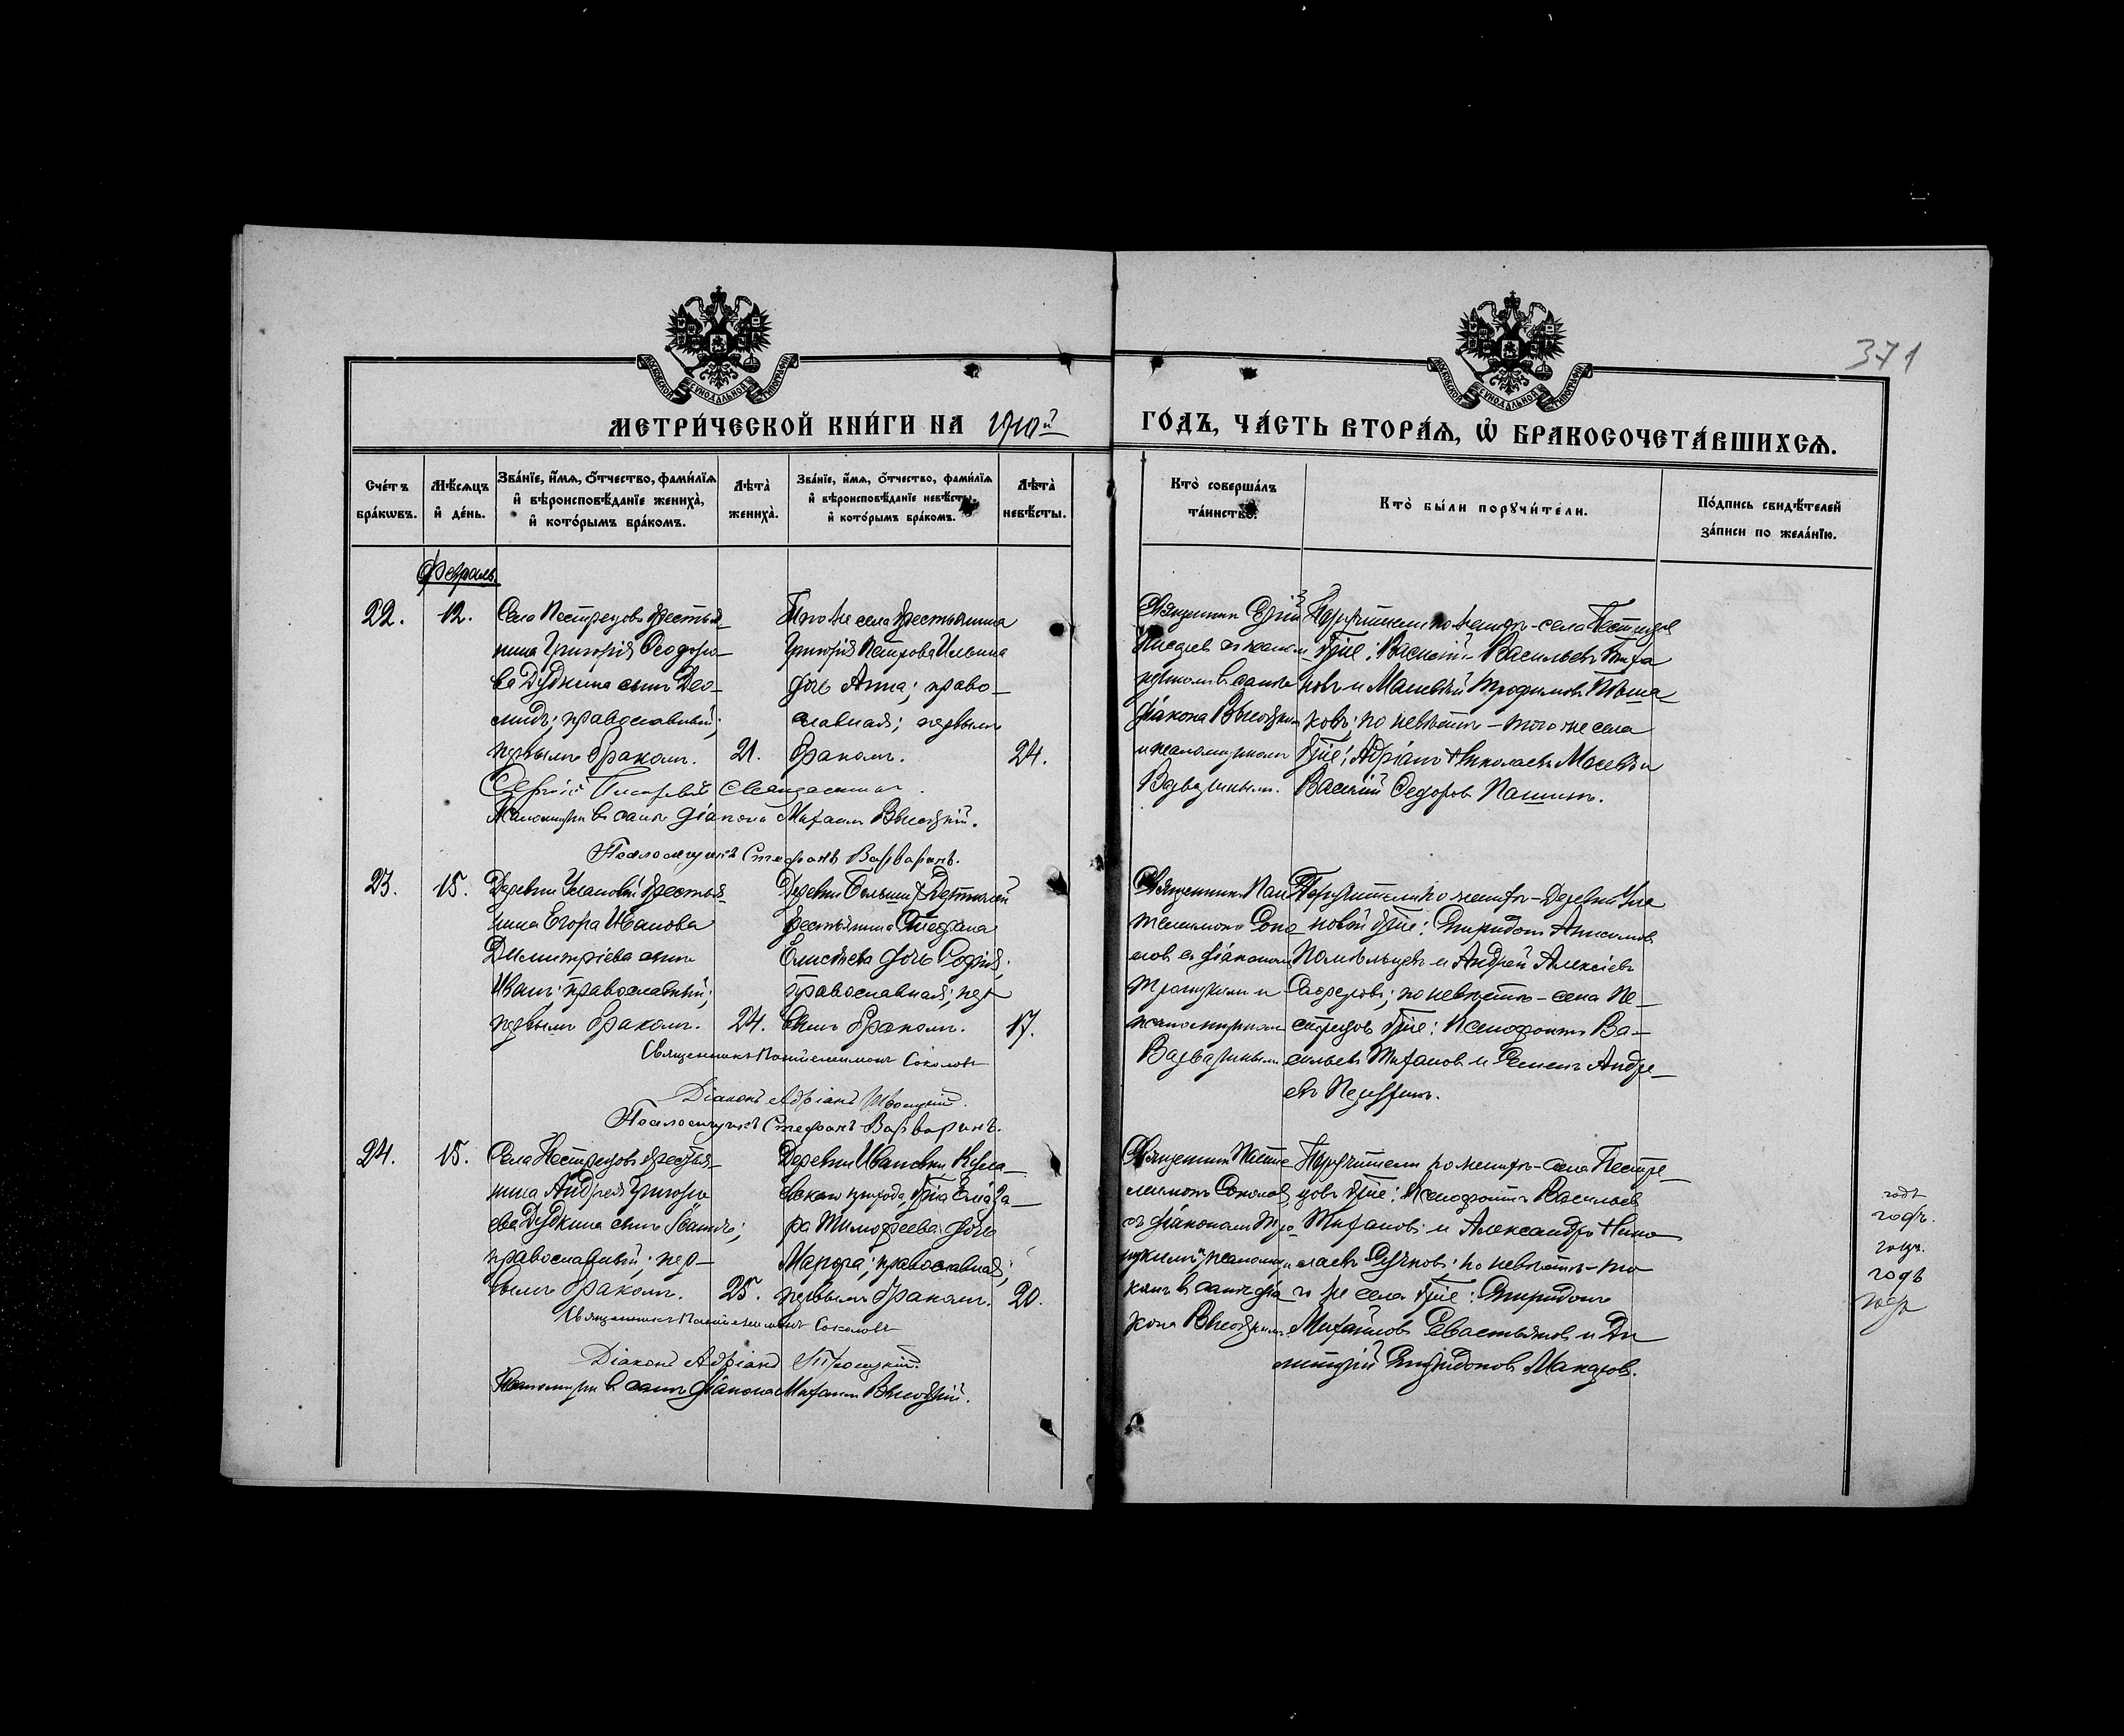 371
МОСКОВСКОЙ СѴНОДАЛЬНОЙ ТИПОГРАФІИ
МОСКОВСКОЙ СѴНОДАЛЬНОЙ ТИПОГРАФІИ
МЕТРИ́ЧЕСКОЙ КНИ́ГИ НА 1910й
ГО́ДЪ, ЧА́СТЬ ВТОРА́Ѧ, Ѡ҆ БРАКОСОЧЕТА́ВШИХСѦ.
Сче́тъ бра́кѡвъ.
Мѣ́сѧцъ и҆ де́нь.
Зва́нїе, и҆́мѧ, ѻ҆́тчество, фами́лїѧ
и҆ вѣроисповѣ́данїе жениха̀,
и҆ кото́рымъ бра́комъ.
Лѣта̀ жениха̀.
Зва́нїе, и҆́мѧ, ѻ҆́тчество, фами́лїѧ
и҆ вѣроисповѣ́данїе невѣ́сты,
и҆ кото́рымъ бра́комъ.
Лѣта̀ невѣ́сты.
Кто̀ соверша́лъ та́инство.
Кто̀ бы́ли порꙋчи́тели.
По́дпись свидѣ́телей за́писи по жела́нїю.
Февраль
22.
12.
Села Пестрецовъ крестья-
нина Григорія Ѳеодоро-
ва Дудкина сынъ Део-
мидъ; православный;
первымъ бракомъ.
21.
Того же села крестьянина
Григорія Петрова Ильина
дочь Анна; право-
славная; первымъ
бракомъ.
24.
Священникъ Сергій
съ псалом-
щикомъ в санѣ
діакона Высоцкимъ
и псаломщикомъ
Варваринымъ.
Поручители по женихѣ - села Пестрецов
крѣне: Василій Васильевъ Тита
новъ и Матвѣй Трофимовъ
ковъ; по невѣстѣ - того же села
крѣне: Адріанъ Николаевъ и
Василій Ѳедоровъ Пашинъ.
Сергій Писаревъ священникъ.
Псаломщикъ в санѣ діакона Михаилъ Высоцкій.
Псаломщикъ Стефанъ Варваринъ.
23.
15.
Деревни Улановой крестья-
нина Егора Иванова
Димитріева сынъ
Иванъ; православный;
первымъ бракомъ.
24.
Деревни Большой
крестьянина Стефана
Елисѣева дочь Софія;
православная; пер-
вымъ бракомъ.
17.
Священникъ Пан
телеимонъ Соко-
ловъ съ діакономъ
Троицкимъ и
псаломщикомъ
Варваринымъ
Поручители по женихѣ - Деревни Ула
новой крѣне: Спиридонъ Анисимовъ
и Андрей Алексіевъ
по невѣстѣ - села Пе-
стрецовъ крѣне: Ксенофонтъ Ва-
сильевъ Титановъ и Семенъ Андре-
евъ
Священникъ Пантелеимонъ Соколовъ
Діаконъ Адріанъ Троицкій.
Псаломщикъ Стефанъ Варваринъ.
24.
15.
Села Пестрецовъ крестья-
нина Андрея Григорь
ева Дудкина сынъ
православный; пер-
вымъ бракомъ.
25.
Деревни Ивановки
прихода, кр҃на Елеаза-
ра Тимофеева дочь
Марѳа; православная;
первымъ бракомъ.
20.
Священникъ Панте
леимонъ Соколовъ
съ діакономъ Тро-
ицкимъ и псаломщи
комъ в санѣ діа
кона Высоцкимъ.
Поручители по женихѣ - села Пестре-
цовъ крѣне: Ксенофонтъ Васильев
Титановъ и Александръ Нико-
лаевъ Сучковъ; по невѣстѣ - то
го же села крѣне: Спиридонъ
Михайловъ Севастьяновъ и Ди
митрій Спиридоновъ Макаровъ.
Священникъ Пантелеимонъ Соколовъ
Діаконъ Адріанъ Троицкій.
Псаломщикъ в санѣ діакона Михаилъ Высоцкій.
годъ